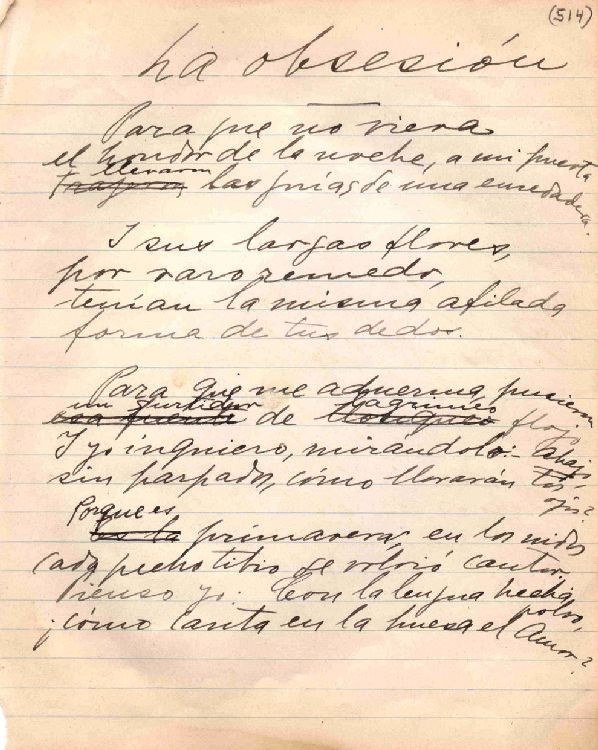 (514)
La obsesión
Para que no viera
el hondor de la noche, a mi puerta
llevaron
trajeron las guías de una enredadera.
I sus largas flores,
por raro remedo,
tenían la misma afilada
forma de tus dedos.
Para que me aduerma, pusieron
un surtidor lagrimeo
esa fuente de lloriqueo flojo
I yo inquiero, mirándolo: abajo,
sin parpados, cómo llorarán tus
ojos?
Porque es
Es la primavera, en los nidos
cada pecho tibio se volvió cantor.
Pienso yo: Con la lengua hecha
polvo,
¿cómo canta en la huesa el Amor?